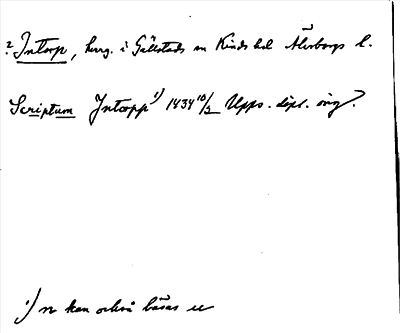 ? Intorp, herrg. i Gällstads sn Kinds hd Älvsborgs l.
Scriptum Jntorpp 1) 1434 10/2 Upps. dipl. orig.
1) n kan också läsas u